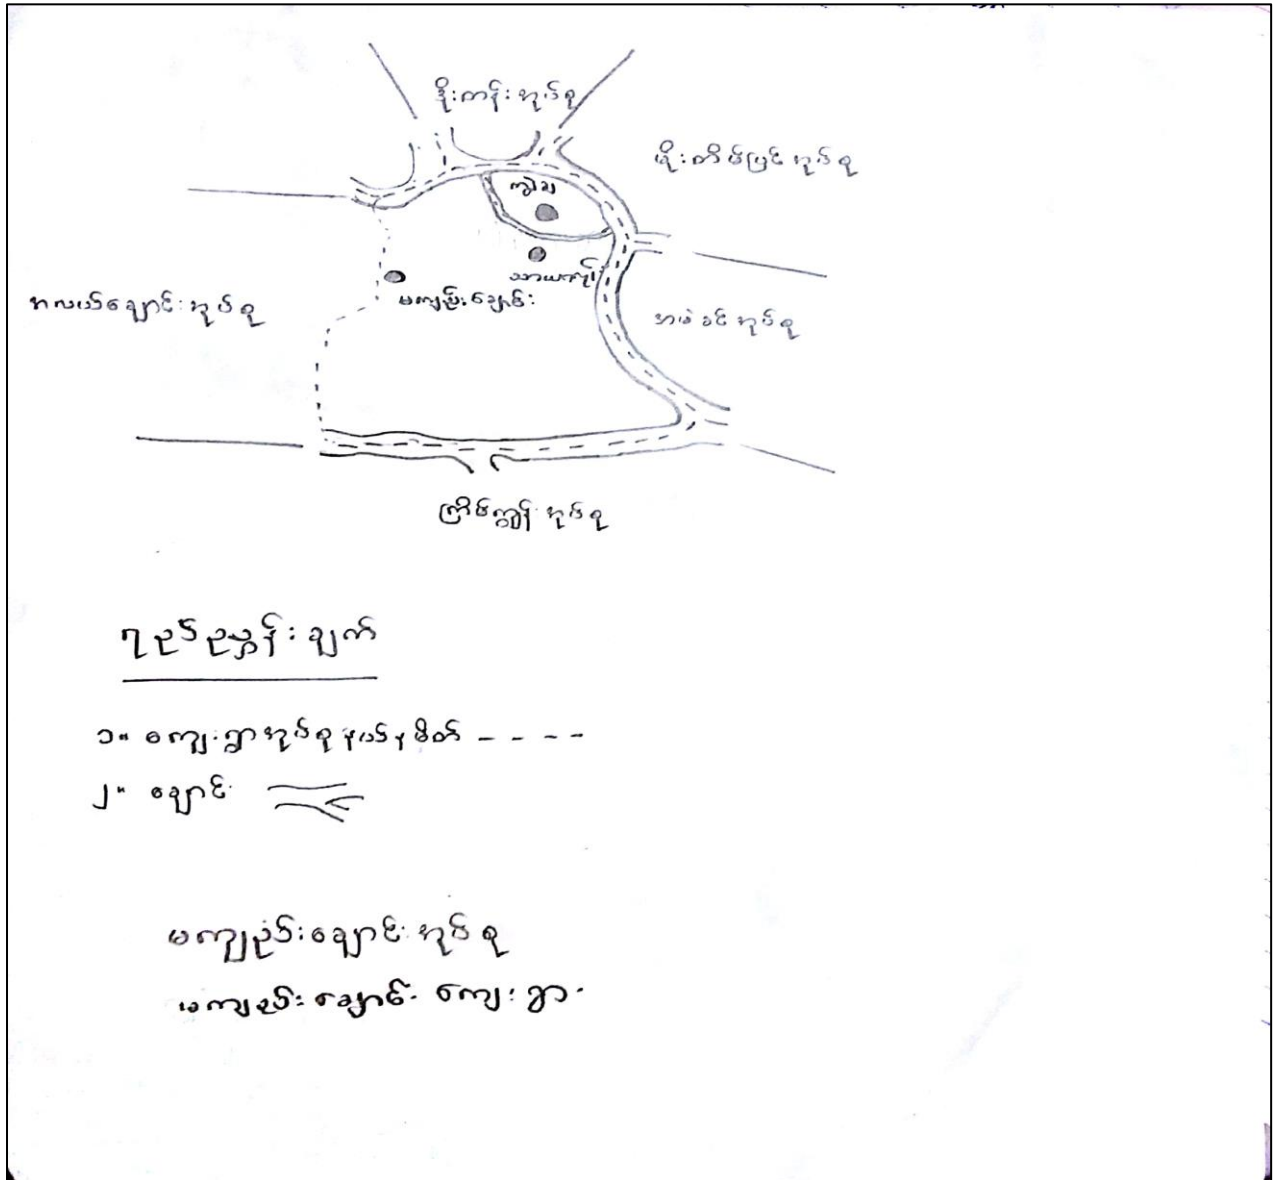 ဒိုးတန်းအုပ်စု
ဖိုးတိမ်ပြင်အုပ်စု
ကျွဲချ
သာယကုန်း
မကျည်းချောင်း
အလယ်ချောင်းအုပ်စု
အဖဲခင်အုပ်စု
ကြိမ်ကျွန်းအုပ်စု
ရည်ညွှန်းချက်
၁။ ကျေးရွာအုပ်စုနယ်နမိတ် - - - -
၂။ ချောင်း
မကျည်းချောင်းအုပ်စု
မကျည်းချောင်းကျေးရွာ